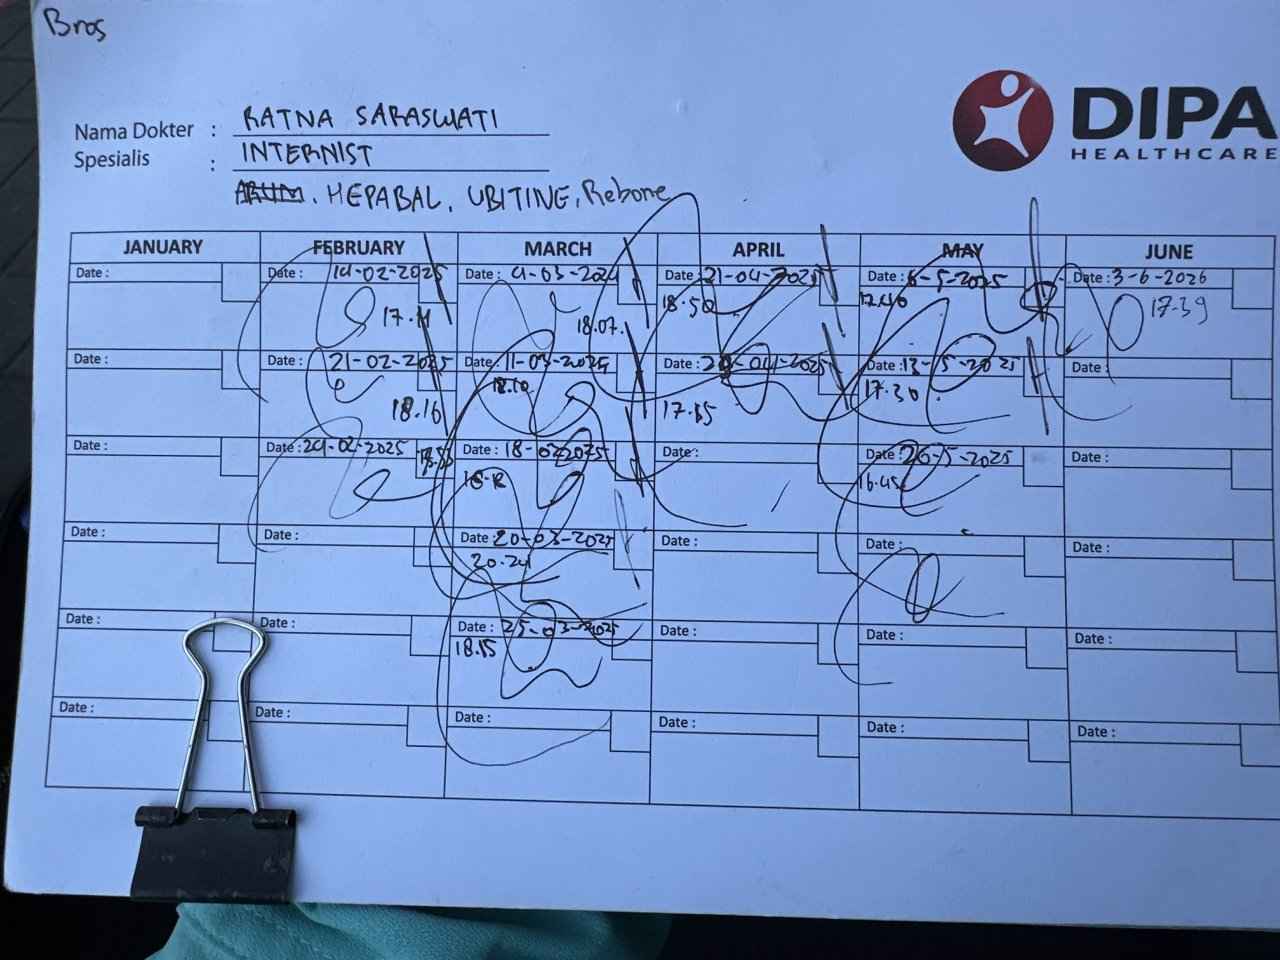 Bros
DIPA
HEALTHCARE
Nama Dokter : RATNA SARASWATI
Spesialis : INTERNIST
HEPABAL, UBITINE, Rebone
JANUARY FEBRUARY MARCH APRIL MAY JUNE
Date : Date : 14-02-2025 Date : 4-03-2024 Date : 21-04-2025 Date : 6-5-2025 Date : 3-6-2026
17.11 18.07. 18.50 17.40 17.39
Date : Date : 21-02-2025 Date : 11-03-2025 Date : 28-04-2025 Date : 13-5-2025 Date :
18.16 18.10 17.35 17.30
Date : Date : 24-02-2025 Date : 18-03-2025 Date : Date : 26-5-2025 Date :
16.45
Date : Date : Date : 20-03-2025 Date : Date : Date :
20.24
Date : Date : Date : 25-03-2025 Date : Date : Date :
18.15
Date : Date : Date : Date : Date : Date :